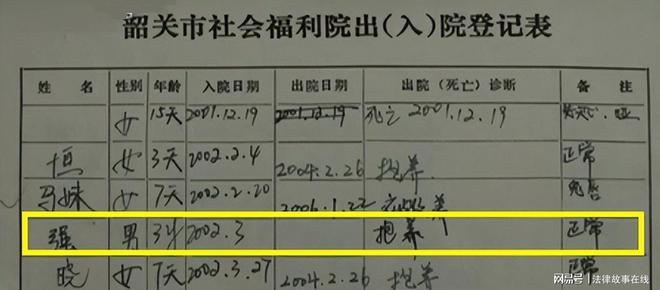 韶关市社会福利院出(入)院登记表
姓 名 性别 年龄 入院日期 出院日期 出院(死亡)诊断 备 注
女 15天 2001.12.19 2001.12.19 死亡 2001.12.19
恒 女 3天 2002.2.4 2004.2.26 抱养. 正常
马妹 女 7天 2002.2.20 养
强 男 2002.3 抱养 正常
晓 女 7天 2002.3.27 2004.2.26 抱养 正常
网易号 | 法律故事在线